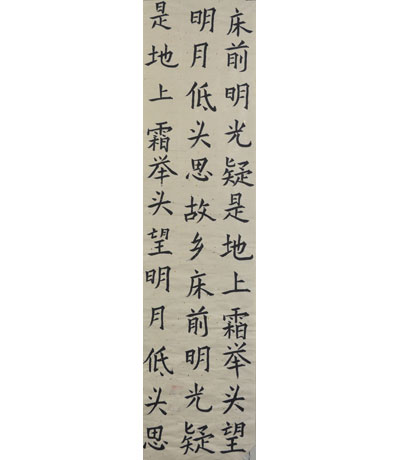 床前明光疑是地上霜举头望
明月低头思故乡床前明光疑
是地上霜举头望明月低头思